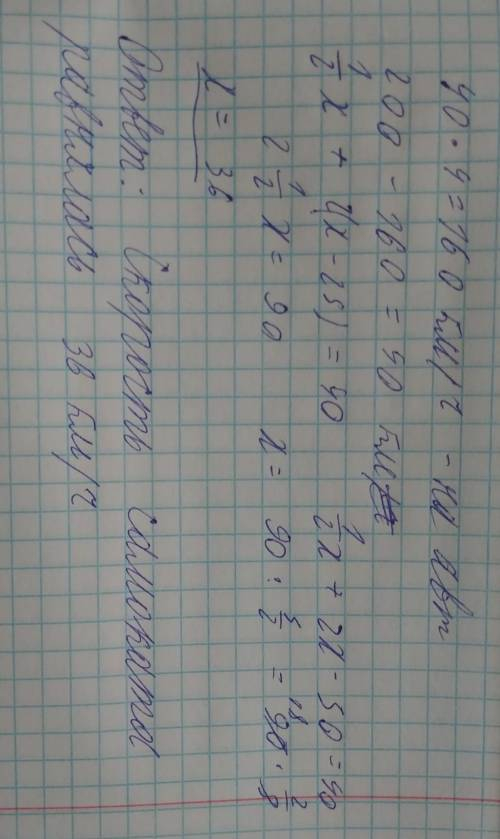 40 · 4 = 160 км/ч - на авт
200 - 160 = 40 км
1/2 x + 2(x - 25) = 40 1/2 x + 2x - 50 = 40
2 1/2 x = 90 x = 90 : 5/2 = 90 18 · 2/5
x = 36
Ответ: Скорость самоката
равнялась 36 км/ч